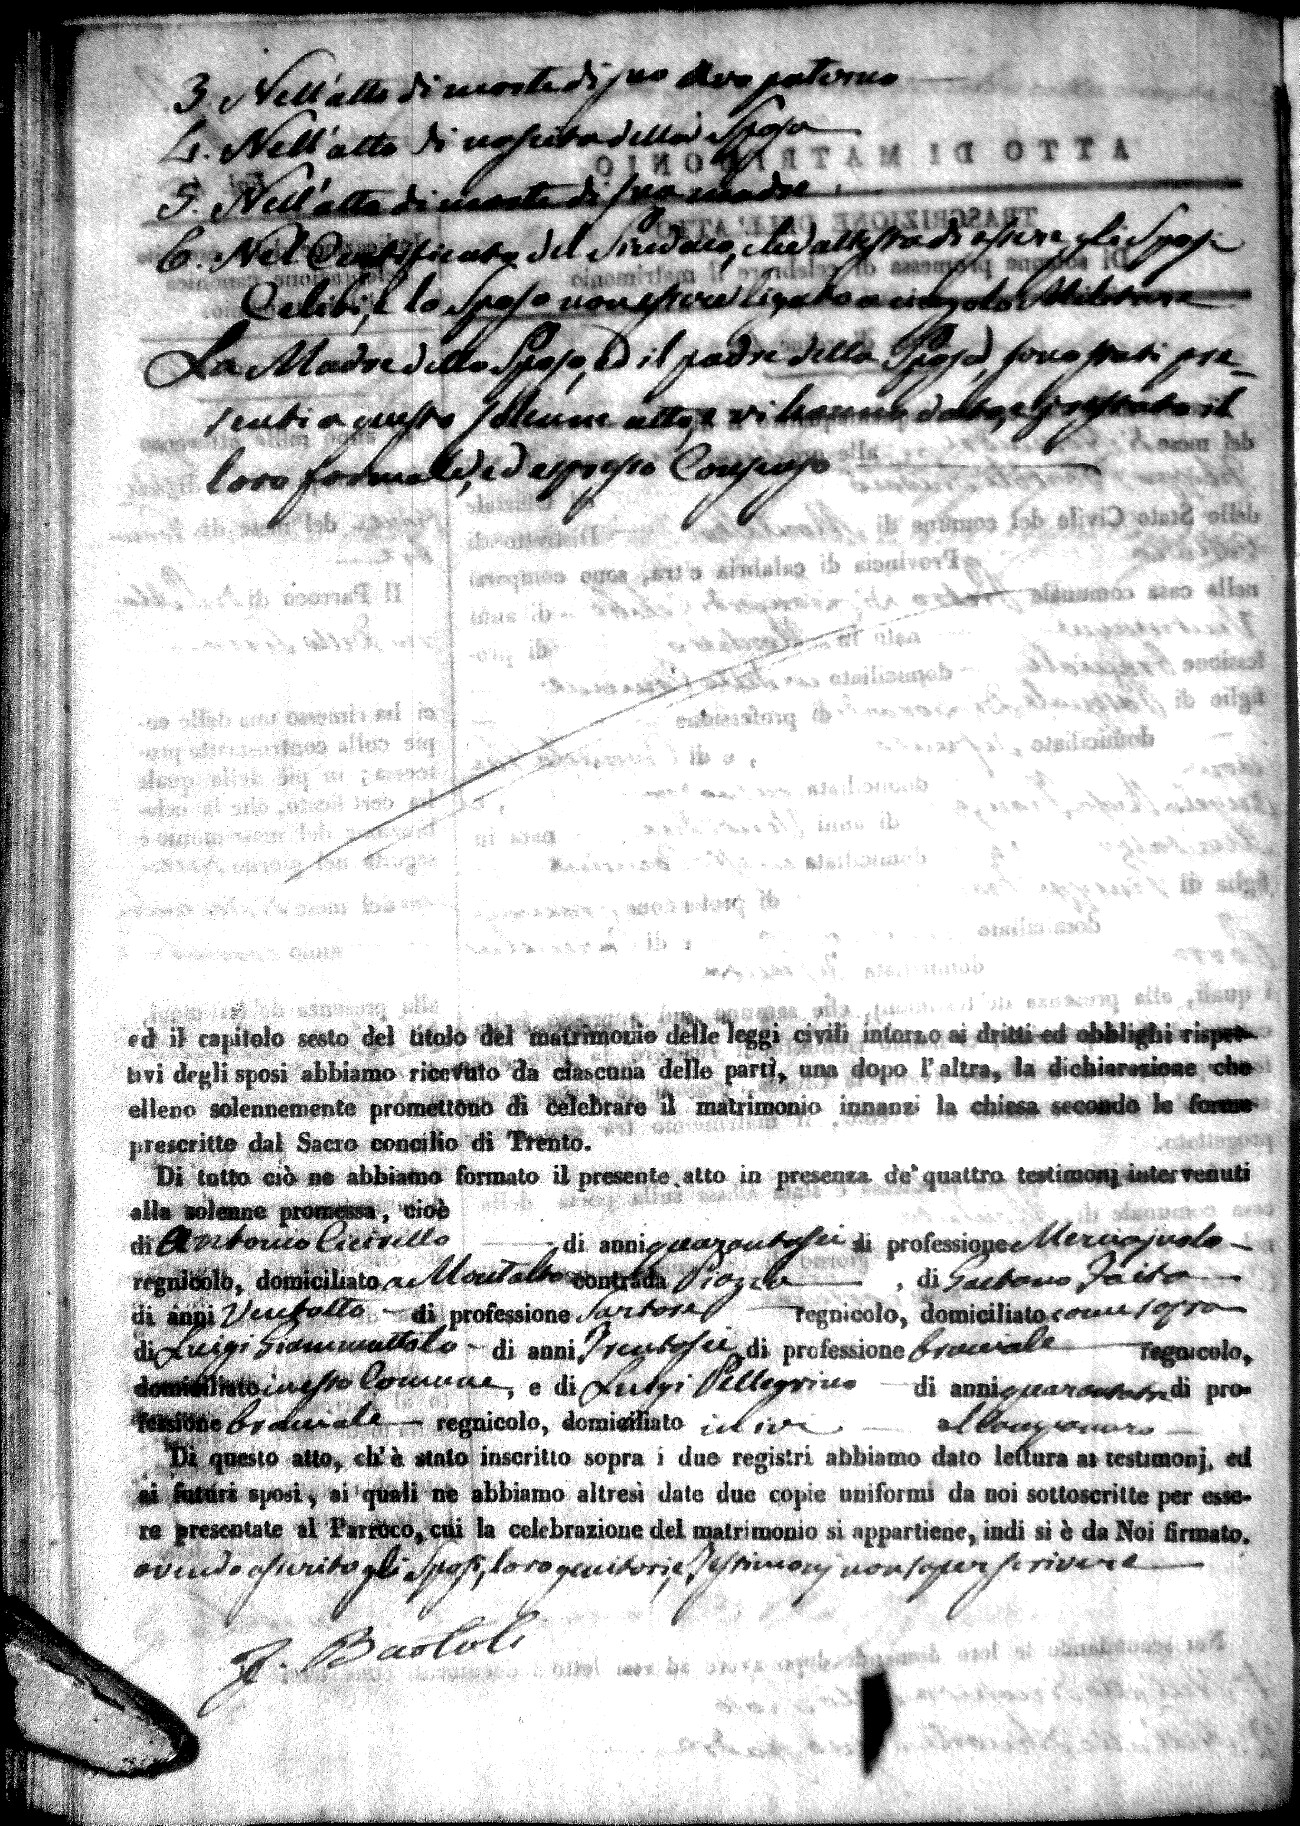 3. Nell'atto di morte di suo Avo paterno
4. Nell'atto di nascita della Sposa
5. Nell'atto di morte di sua madre
6. Nel Certificato del Sindaco, che attesta di essere gli Sposi
Celibi, e lo Sposo non essere ligato a cingolo Militare
La Madre dello Sposo, ed il padre della Sposa, sono stati pre=
senti a questo solenne atto, e vi hanno dato, e prestato il
loro formale, ed espresso Consenso
ed il capitolo sesto del titolo del matrimonio delle leggi civili intorno ai dritti ed obblighi rispet-
tivi degli sposi abbiamo ricevuto da ciascuna delle parti, una dopo l'altra, la dichiarazione che
elleno solennemente promettono di celebrare il matrimonio innanzi la chiesa secondo le forme
prescritte dal Sacro concilio di Trento.
Di tutto ciò ne abbiamo formato il presente atto in presenza de' quattro testimonj intervenuti
alla solenne promessa, cioè
di Antonio di anni quarantasei di professione
regnicolo, domiciliato a Montalto contrada Piazza, di Gaetano
di anni Ventotto di professione Sartore regnicolo, domiciliato come sopra
di Luigi Giammattolo di anni Trentasei di professione bracciale regnicolo,
domiciliato in esso Comune, e di Luigi Pellegrino di anni di pro-
fessione bracciale regnicolo, domiciliato ivi
Di questo atto, ch'è stato inscritto sopra i due registri abbiamo dato lettura ai testimonj, ed
ai futuri sposi, ai quali ne abbiamo altresì date due copie uniformi da noi sottoscritte per esse-
re presentate al Parroco, cui la celebrazione del matrimonio si appartiene, indi si è da Noi firmato.
avendo asserito gli Sposi, loro genitori, e Testimonj non saper scrivere